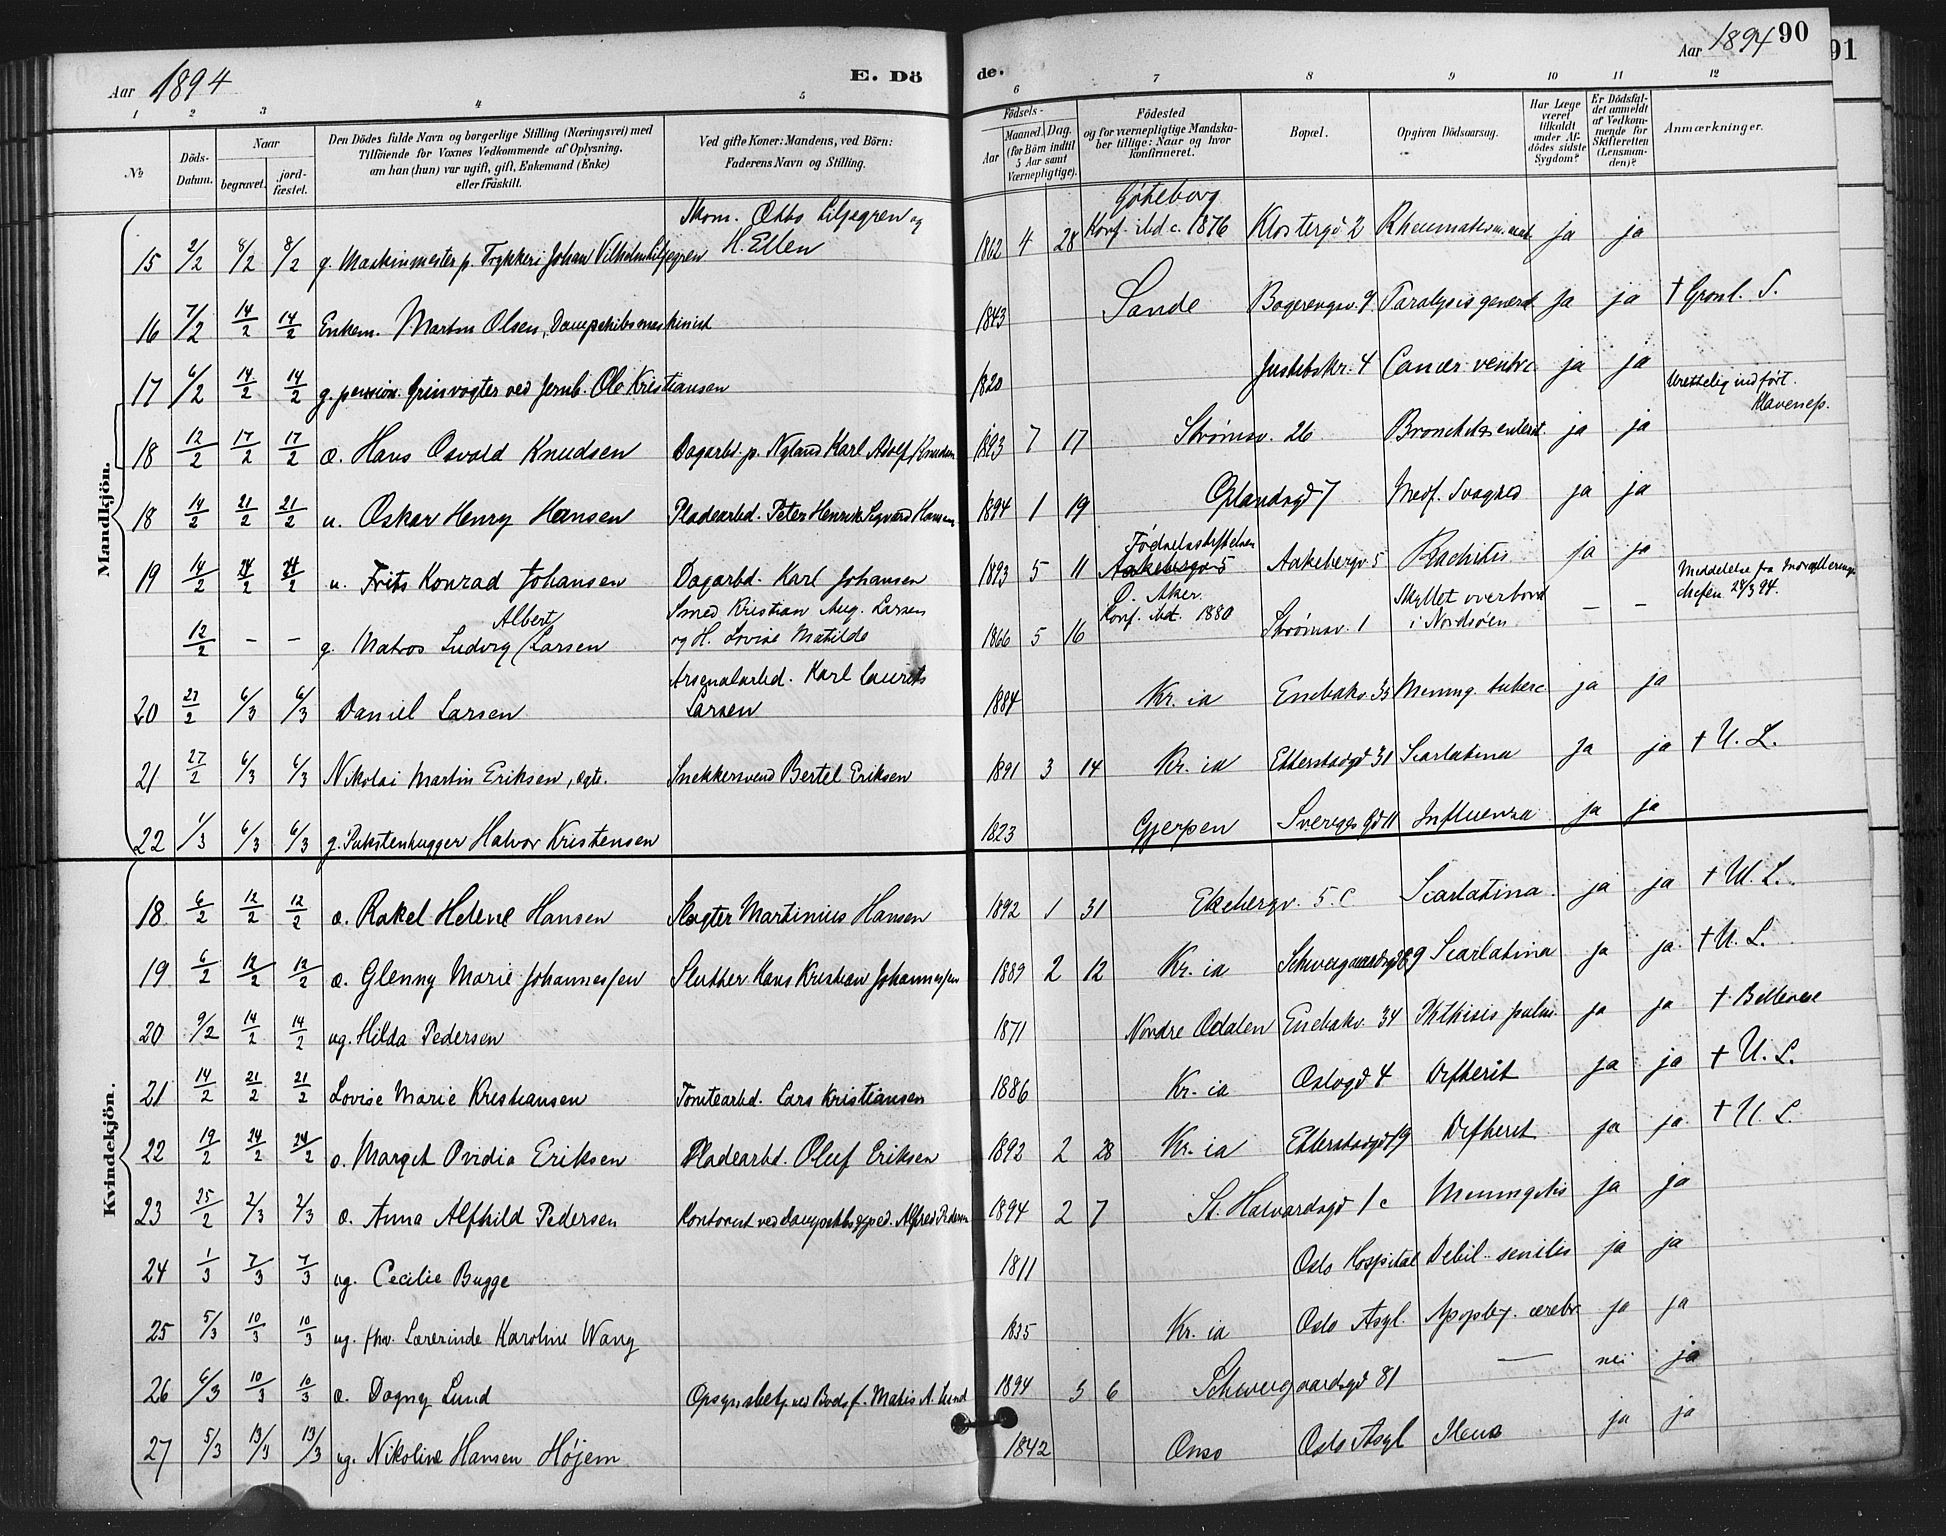 Aar 1894
E. Dö
de.
Aar 1894
90
91
1 2 3 4 5 6 7 8 9 10 11 12
№
Döds-Datum.
Naar
begravet.
jord-fæstet.
Den Dödes fulde Navn og borgerlige Stilling (Næringsvei) med
Tilföiende for Voxnes Vedkommende af Oplysning,
om han (hun) var ugift, gift, Enkemand (Enke)
eller fraskilt.
Ved gifte Koner: Mandens, ved Börn:
Faderens Navn og Stilling.
Födsels-
Aar
Maaned. Dag.
(for Börn indtil
5 Aar samt
Værnepligtige).
Födested
og for værnepligtige Mandska-
ber tillige: Naar og hvor
konfirmeret.
Bopæl.
Opgiven Dödsaarsag.
Har Læge
været
tilkaldt
under Af-
dödes sidste
Sygdom?
Er Dödsfal-
det anmeldt
af Vedkom-
mende for
Skifteretten
(Lensman-
den)?
Anmærkninger.
Mandkjön.
15 2/2 8/2 8/2 g. Maskinmester p. Trykkeri Johan Vilhelm Liljegren Otto Liljegren og H. Ellen 1862 4 28 Göteborg Konf. ibid. c. 1876 Klostergd 2 ja ja
16 7/2 14/2 14/2 Enkem. Martin Olsen, Dampskibsmaskinist 1843 Sande Paralysis general. ja ja † Grønl. S.
17 6/2 14/2 14/2 g. pension. Grinvogter ved Jernb. Ole Kristiansen 1820 Cancer ventric. ja ja
18 12/2 17/2 17/2 æ. Hans Osvald Knudsen Dagarbd. p. Nyland Karl Adolf Knudsen 1893 7 17 Strömsv. 26 ja ja Urettelig indfört.
18 14/2 21/2 21/2 u. Oskar Henry Hansen Pladearbd. Peter Henrik Sigvard Hansen 1894 1 19 Medf. Svaghed ja ja
19 14/2 24/2 24/2 u. Frits Konrad Johansen Dagarbd. Karl Johansen 1893 5 11 Födselsstiftelsen Aakebergv 5 Aakebergv 5 Rachitis ja ja
12/2 – – g. Matros Ludvig Albert Larsen Smed Kristian Aug. Larsen og H. Lovise Matilde 1866 5 16 Ö. Aker. Konf. ibid. 1880 Strömsv. 1 Skyllet overbord i Nordsöen – –
20 27/2 6/3 6/3 Daniel Larsen Arsenalarbd. Karl Laurits Larsen 1884 Kr. ia Enebakv. 35 Mening. tuberc ja ja
21 27/2 6/3 6/3 Nikolai Martin Eriksen, ægte. Snekkersvend Bertel Eriksen 1891 3 14 Kr. ia Etterstadgd 31 Scarlatina ja ja † U. L.
22 1/3 6/3 6/3 g. Pukstenhugger Halvor Kristensen 1823 Gjerpen Sverresgd 11 Influenza ja ja
Kvindekjön.
18 6/2 12/2 12/2 æ. Rakel Helene Hansen Slagter Martinius Hansen 1892 1 31 Ekebergv. 5. c Scarlatina ja ja † U. L.
19 6/2 12/2 12/2 æ. Glenny Marie Johannessen Slutther Hans Kristian Johannessen 1889 2 12 Kr. ia Schweigaardsgd 89 Scarlatina ja ja † U. L.
20 9/2 14/2 14/2 ug. Hilda Pedersen 1871 Nordre Odalen Enebakv. 34 Phthisis pulm. ja ja † Bellevue
21 14/2 21/2 21/2 Lovise Marie Kristiansen Tomtearbd. Lars Kristiansen 1886 Kr. ia Oslogd 4 Difterit ja ja † U. L.
22 19/2 24/2 24/2 æ. Margit Ovidia Eriksen Pladearbd. Oluf Eriksen 1892 2 28 Kr. ia Etterstadgd 19 Difterit ja ja † U. L.
23 25/2 2/3 2/3 æ. Anna Alfhild Pedersen Kontorist ved Dampskibsexped. Alfred Pedersen 1894 2 7 St. Halvardsgd 1 c Meningitis ja ja
24 1/3 7/3 7/3 ug. Cecilie Bugge 1811 Oslo Hospital Debil. senilis ja ja
25 5/3 10/3 10/3 ug. fhv. Lærerinde Karoline Wang 1835 Kr. ia Oslo Asyl. Apoplex. cerebr. ja ja
26 6/3 10/3 10/3 æ. Dagny Lund Opsynsbetj. ved Bodsf. Matis A. Lund 1894 3 6 Schweigaardsgd 81 — nei ja
27 5/3 13/3 13/3 ug. Nikoline Hansen Höjem 1842 Onsö Oslo Asyl Ileus ja ja